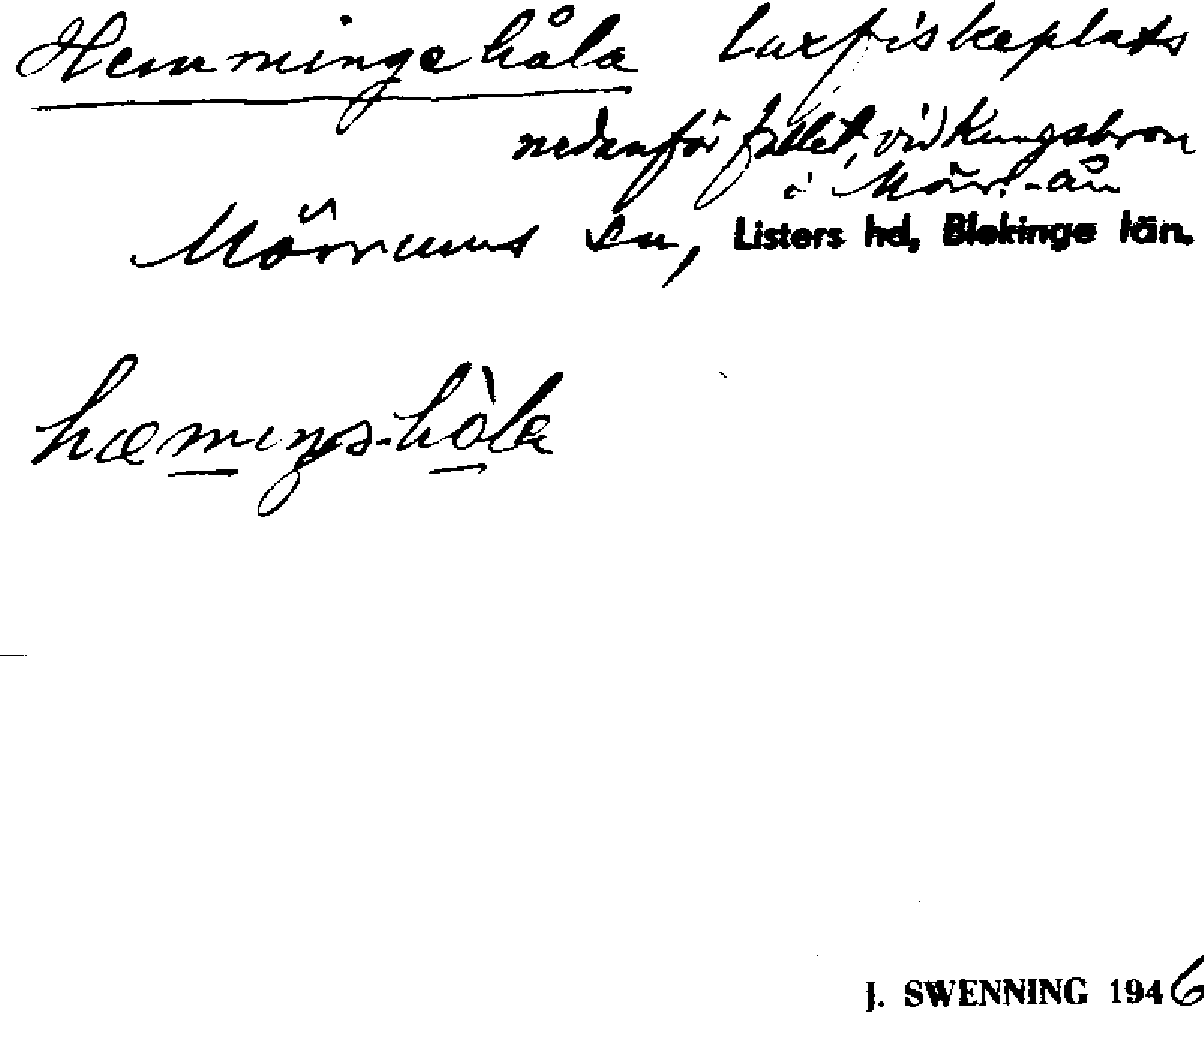 Hemmingehåla laxfiskeplats
nedanför fallet, vid Kungsbron
i Mörr.-ån
Mörrums sn, Listers hd, Blekinge län.
hæmiŋə-hòla
J. SWENNING 1946